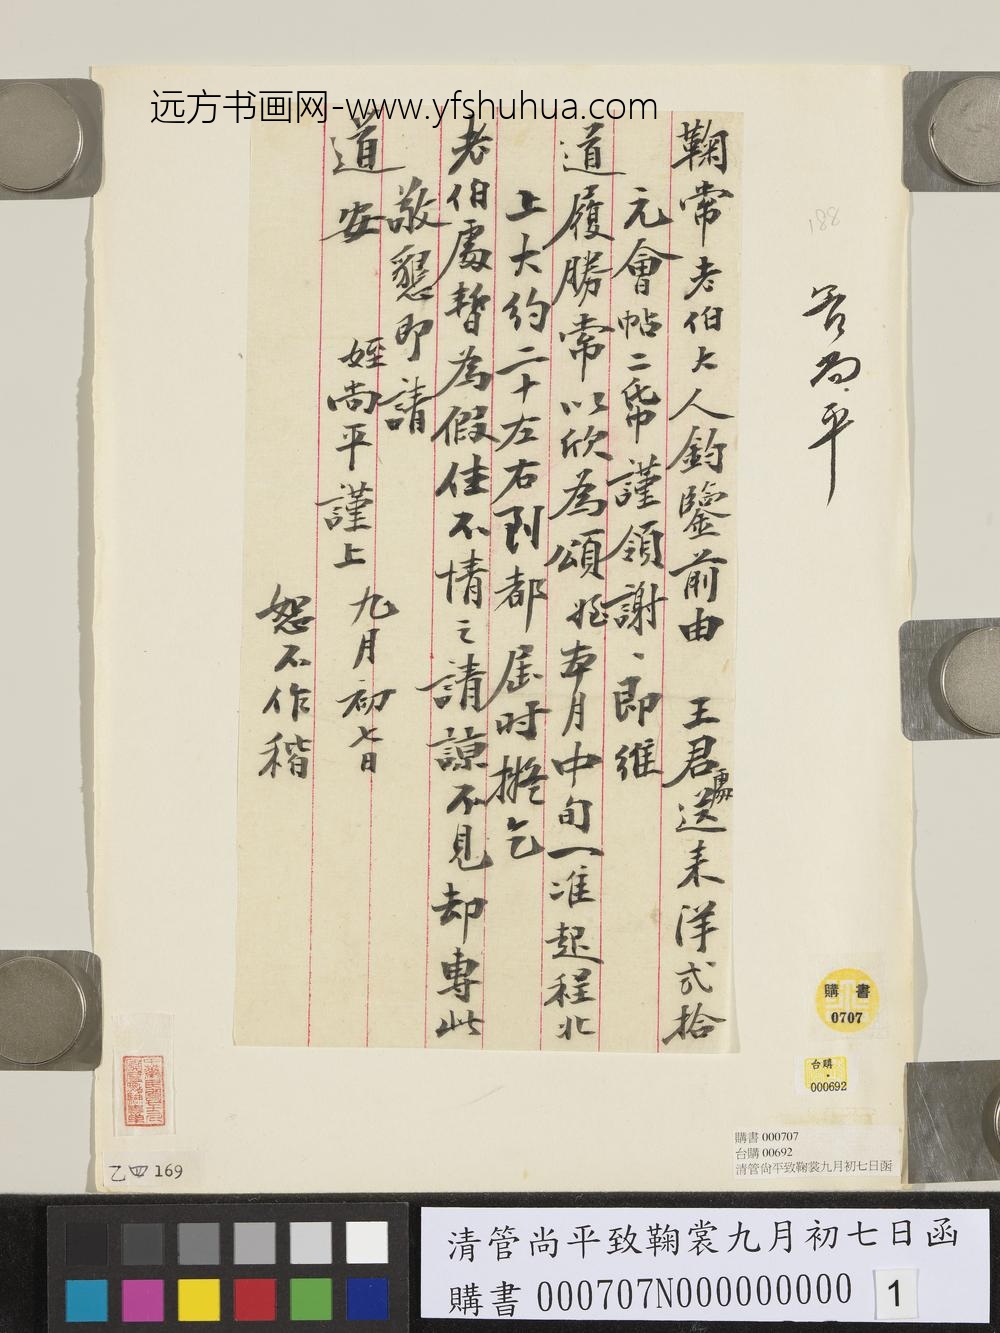 远方书画网-www.yfshuhua.com
鞠常老伯大人鈞鑒前由 王君處送来洋弍拾
元會帖二帋謹領謝、即維
道履勝常以欣為頌姪本月中旬一准起程北
上大約二十左右到都屆时擬乞
老伯處暫為假住不情之請諒不見却專此
敬懇即請
道安
姪尚平謹上 九月初七日
恕不作稭
管尚平
188
購書
0707
台購
000692
購書 000707
台購 00692
清管尚平致鞠裳九月初七日函
乙四 169
清管尚平致鞠裳九月初七日函
購書 000707N000000000 1